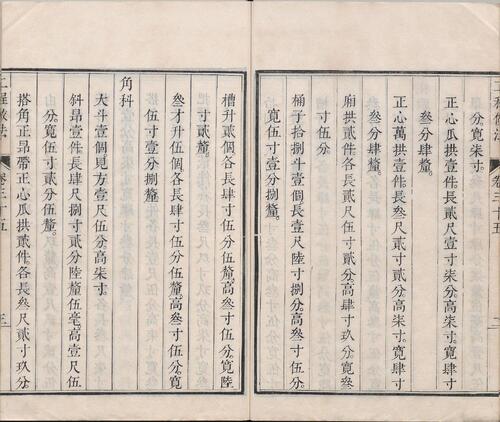 工程做法
卷三十五
二
分寬柒寸。
正心瓜拱壹件。長貳尺壹寸柒分。高柒寸。寬肆寸
叁分肆釐。
正心萬拱壹件。長叁尺貳寸貳分。高柒寸。寬肆寸
叁分肆釐。
廂拱貳件。各長貳尺伍寸貳分。高肆寸玖分。寬叁
寸伍分。
桶子拾捌斗壹個。長壹尺陸寸捌分。高叁寸伍分。
寬伍寸壹分捌釐。
槽升貳個。各長肆寸伍分伍釐。高叁寸伍分。寬陸
寸貳釐。
叁才升伍個。各長肆寸伍分伍釐。高叁寸伍分。寬
伍寸壹分捌釐。
角科
大斗壹個。見方壹尺伍分。高柒寸。
斜昂壹件。長肆尺捌寸貳分陸釐伍毫。高壹尺伍
寸。寬伍寸貳分伍釐。
搭角正昂帶正心瓜拱貳件。各長叁尺貳寸玖分
工程做法
卷三十五
三